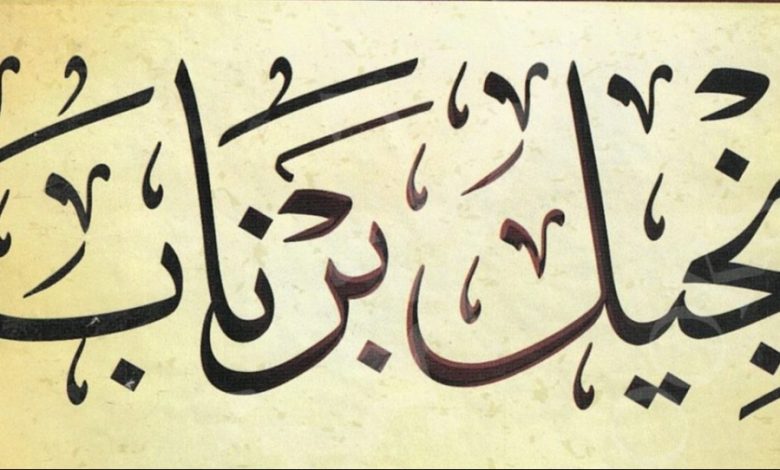 نجيل برناب